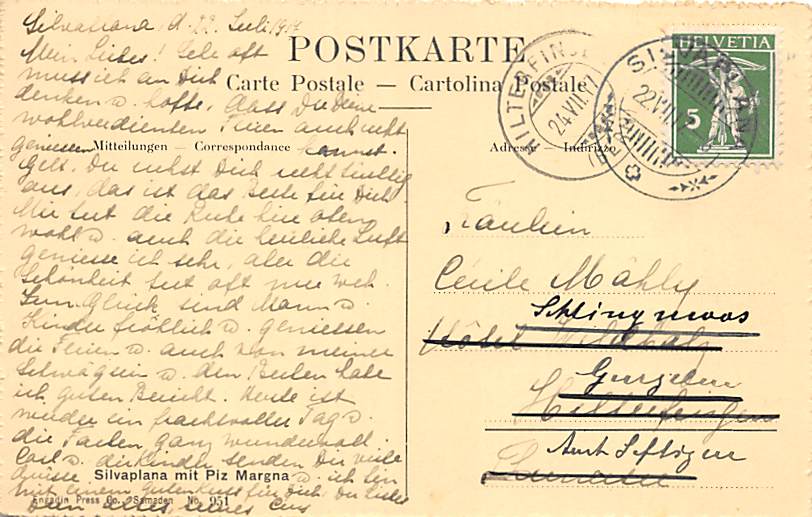 Silvaplana d. 22. Juli 1917
Mein Liebes! Sehr oft
muss ich an Dich
denken u. hoffe, dass Du Deine
wohlverdienten Ferien auch recht
geniessen kannst.
Gelt, Du ruhst Dich recht tüchtig
aus, das ist das Beste für Dich.
Mir tut die Ruhe hier oben
wohl u. auch die herrliche Luft
geniesse ich sehr, aber die
Schönheit tut oft nur weh.
Zum Glück sind Mann u.
Kinder fröhlich u. geniessen
die Ferien u. auch von meiner
Schwägerin u. den Buben habe
ich guten Bericht. Heute ist
wieder ein prachtvoller Tag u.
die Farben ganz wundervoll.
Carl u. die Kinder senden Dir viele
Grüsse u. ich bin
mit einem guten Kuss für Dich, Du Liebes
Dein altes, treues
POSTKARTE
Carte Postale — Cartolina Postale
Mitteilungen – Correspondance
Adresse – Indirizzo
HILTERFINGEN
24.VII.17
SILVAPLANA
22.VII.17
HELVETIA
5
Fräulein
Cécile Mähly
Schlingmoos
Hôtel
Gurzelen
Hilterfingen
Amt Seftigen
Silvaplana mit Piz Margna
Engadin Press Co., Samaden No. 951